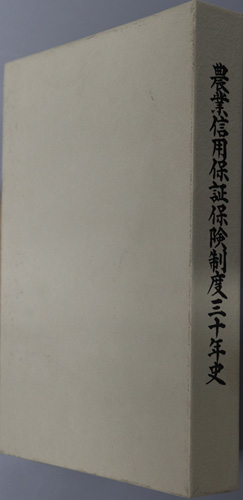 農業信用保証保険制度三十年史